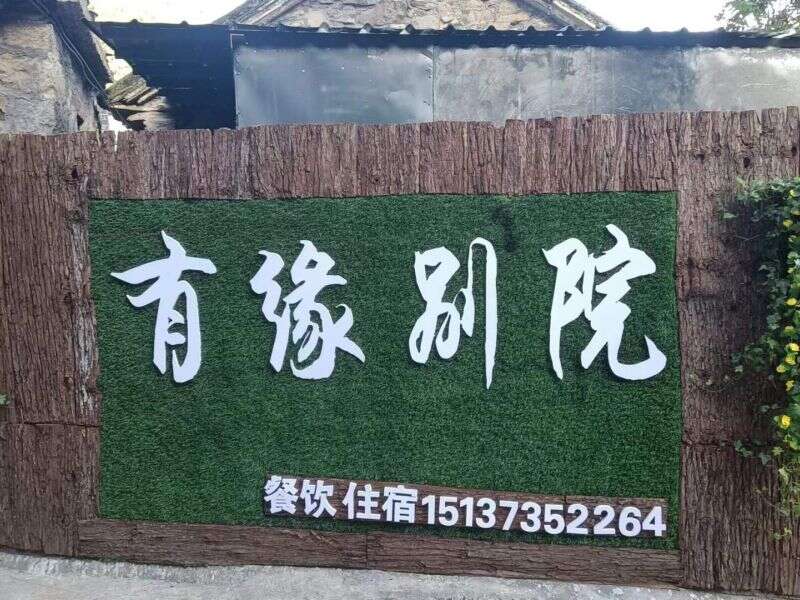 有缘别院
餐饮 住宿15137352264